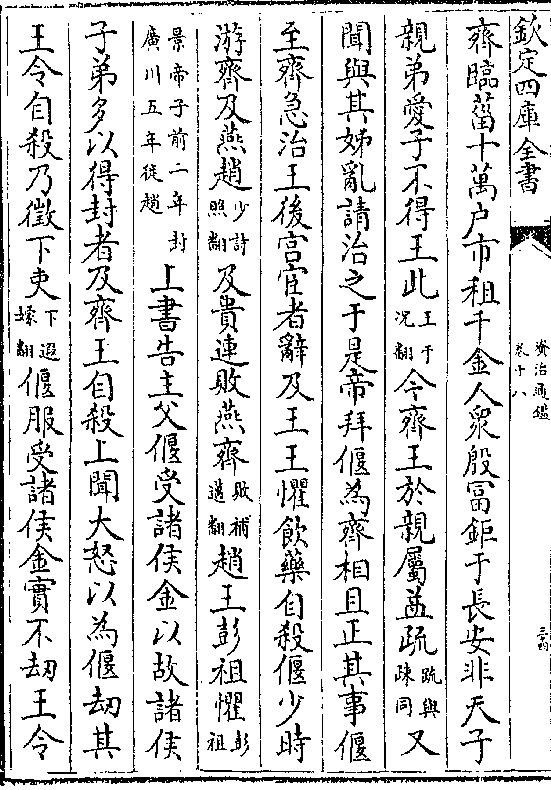 欽定四庫全書
資治通鑑
卷十八
三四
齊臨菑十萬户市租千金人衆殷富鉅于長安非天子
親弟愛子不得王此王于况翻今齊王於親屬益疏疏與踈同又
聞與其姊亂請治之于是帝拜偃為齊相且正其事偃
至齊急治王後宫宦者辭及王王懼飲藥自殺偃少時
游齊及燕趙少詩照翻及貴連敗燕齊敗補邁翻趙王彭祖懼彭祖
景帝子前二年封廣川五年徙趙上書告主父偃受諸侯金以故諸侯
子弟多以得封者及齊王自殺上聞大怒以為偃刼其
王令自殺乃徵下吏下遐嫁翻偃服受諸侯金實不刼王令